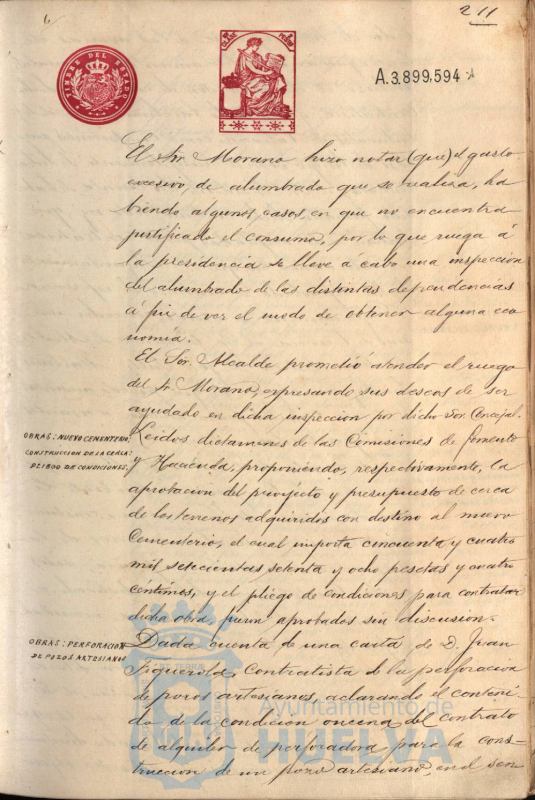 211
TIMBRE DEL ESTADO
A.3.899,594
El Sr. Morano hizo notar (que) el gasto
excesivo, de alumbrado que se realiza, ha
biendo algunos casos, en que no encuentra
justificado el consumo, por lo que ruega á
la presidencia se lleve á cabo una inspección
del alumbrado de las distintas dependencias
á fin de ver el modo de obtener alguna eco
nomía.
El Sr. Alcalde prometió atender el ruego
del Sr. Morano, expresando sus deseos de ser
ayudado en dicha inspección por dicho Sor. Concejal.
OBRAS: NUEVO CEMENTERIO:
CONSTRUCCION DE LA CERCA:
PLIEGO DE CONDICIONES.
Leidos dictamenes de las Comisiones de fomento
y Hacienda, proponiendo, respectivamente, la
aprobacion del proyecto y presupuesto de cerca
de los terrenos adquiridos con destino al nuevo
Cementerio, el cual importa cincuenta y cuatro
mil setecientas setenta y ocho pesetas y cuatro
céntimos, y el pliego de condiciones para contratar
dicha obra, fueron aprobados sin discusion.
OBRAS: PERFORACION
DE POZOS ARTESIANOS
Dada cuenta de una carta de D. Juan
Figuerola, Contratista de la perforacion
de pozos artesianos, aclarando el conteni-
do de la condicion oncena del contrato
de alquiler de perforadora para la cons-
truccion de un pozo artesiano, en el sen
Ayuntamiento de
HUELVA